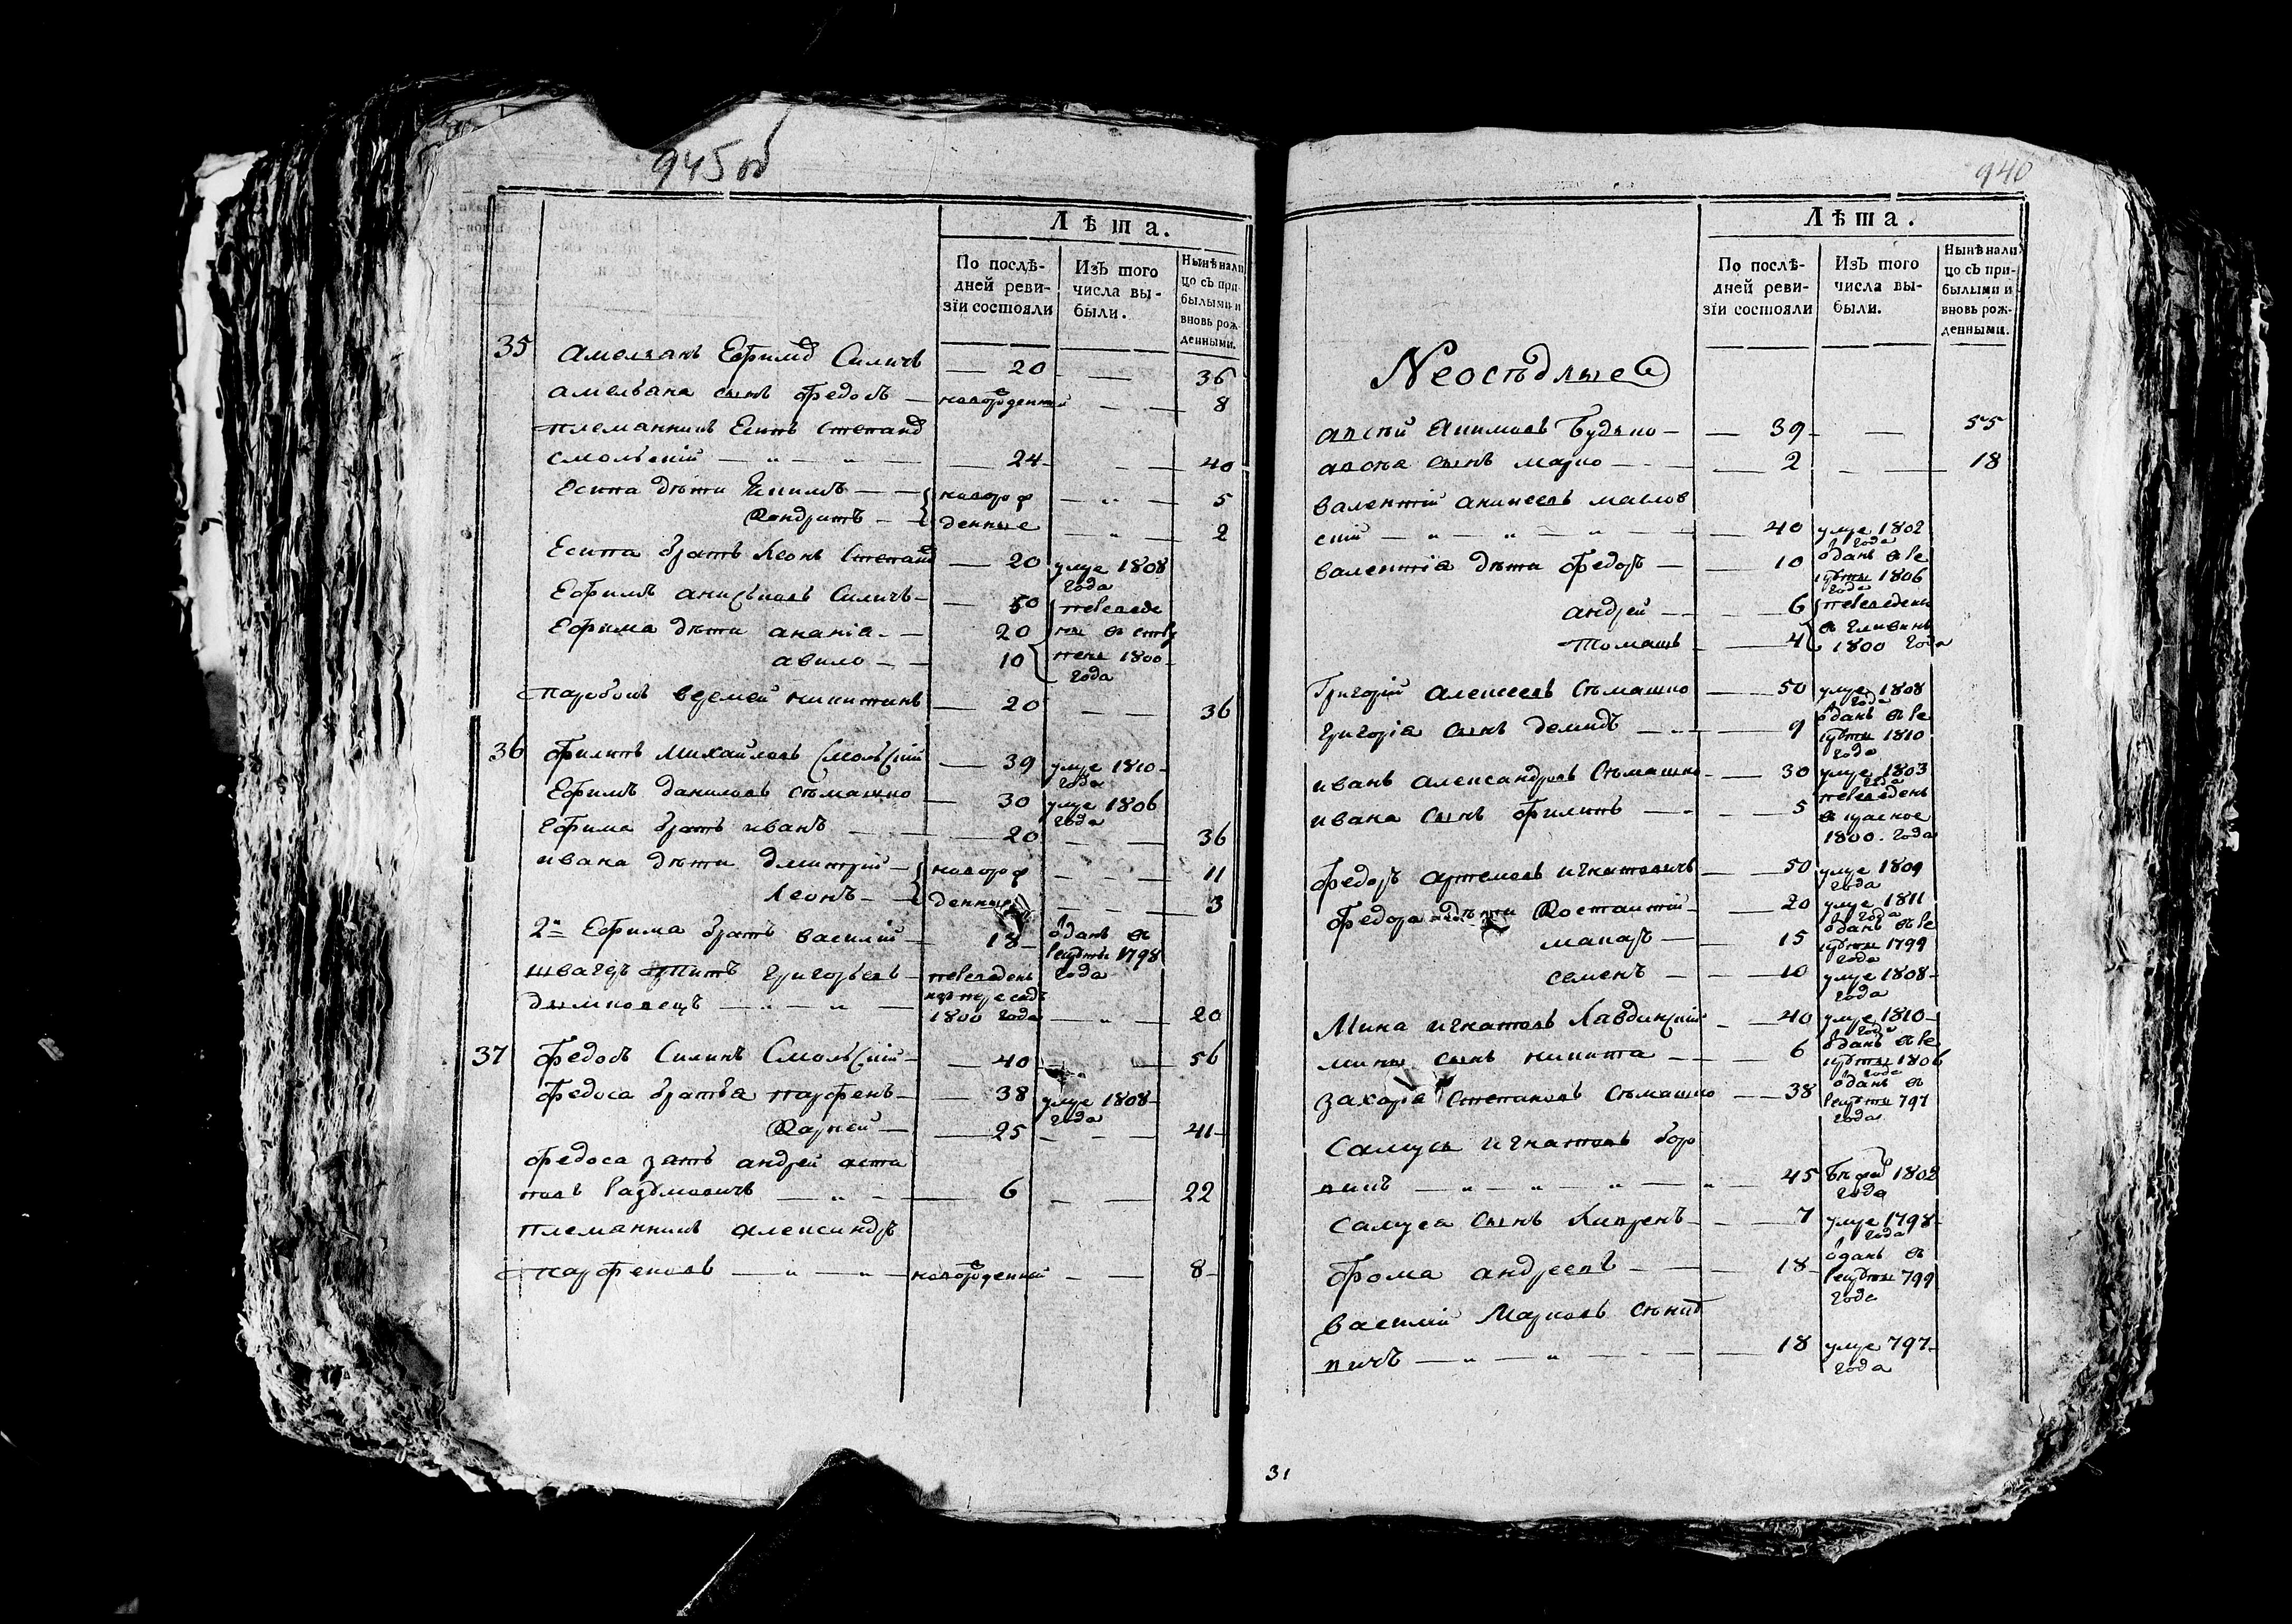 945 об
Лѣта.
По послѣ-
дней реви-
зіи состояли
Изъ того
числа вы-
были.
Нынѣ нали
цо съ при-
былыми и
вновь рож-
денными.
35 Амелянъ Ефимов Силичъ — 20 — — 36
Амеляна сынъ Федосъ — новорожденный — — 8
племянникъ Есипъ Степанов
Смольскій — „ — „ — — 24 — — 40
Есипа дѣти Якимъ — — новорож — „ — 5
Кондратъ — — денные — „ — 2
Есипа братъ Леонъ Степанов — 20 умре 1808
года
Ефимъ Анисковъ Силичъ — — 50 переведе
Ефима дѣти Ананія — — 20 ны в
авило — — 10 1800
года
паробокъ Веремей Никитинъ — 20 — — 36
36 Филипъ Михайловъ Смольскій — 39 умре 1810
года
Ефимъ Даниловъ Сѣмашко — 30 умре 1806
года
Ефима братъ Иванъ — — 20 — — 36
Ивана дѣти Дмитрій — новорож — — 11
Леонъ — денные — — 3
2й Ефима братъ Василій — 18 — одан в
рекруты 1798
года
швагеръ Григорьевъ — переведенъ
1800 года — „ — 20
37 Федосъ Силинъ Смольскій — — 40 — 56
Федоса братья Парфенъ — — 38 умре 1808
года
Карней — — 25 — — 41
Федоса зять Андрей Аста
повъ — „ — — 6 — — 22
племянникъ Александръ
Парфеновъ — „ — „ — новорожденный — — 8
940
Лѣта.
По послѣ-
дней реви-
зіи состояли
Изъ того
числа вы-
были.
Нынѣ нали
цо съ при-
былыми и
вновь рож-
денными.
Неосѣдлые
Авсѣй Якимовъ Будько — — 39 — — 55
Авсѣя сынъ Марко — — 2 — 18
Валентій Аникеевъ
скій — „ — „ — „ — 40 умре 1802
года
Валентія дѣти Федоръ — — 10 одан в ре
круты 1806
года
Андрей — — 6 переведены
Томашъ — 4 в
1800 года
Григорій Алексеевъ Сѣмашко — 50 умре 1808
года
Григорія сынъ Демидъ — — 9 одан в ре
круты 1810
года
Иванъ Александровъ Сѣмашко — 30 умре 1803
года
Ивана сынъ Филипъ — — 5 переведенъ
в красное
1800. года
Федоръ Артемовъ Игнатовичъ — 50 умре 1809
года
Федора дѣти Костантій — — 20 умре 1811
года
Макаръ — — 15 одан в ре
круты 1799
года
Семенъ — — 10 умре 1808
года
Мина Игнатовъ Лавдинскій — 40 умре 1810
года
Мины сынъ Никита — — 6 одан в ре
круты 1806
года
Захарія Степановъ Сѣмашко — 38 одан в
рекруты 797
года
Самусь Игнатовъ Бор
викъ — „ — „ — „ — „ — 45 Бѣжа 1802
года
Самуся сынъ Кипренъ — — 7 умре 1798
года
Фома Андреевъ — — 18 одан в
рекруты 799
года
Василій Марковъ
вичъ — „ — „ — — 18 умре 797
года
31